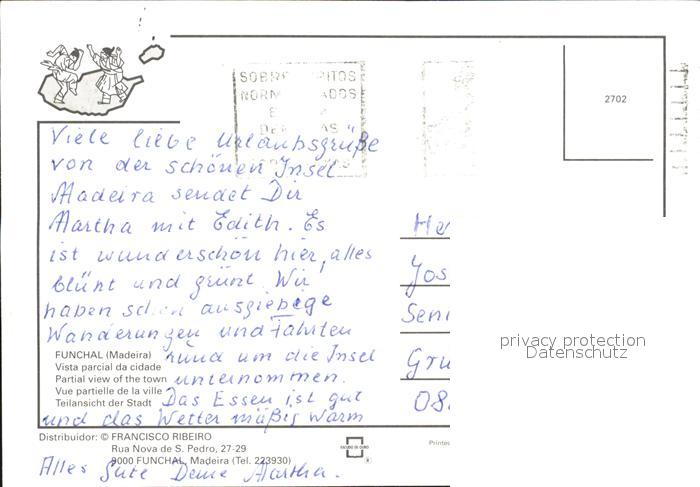 SOBR
NORM ADOS
E
2702
Viele liebe Urlaubsgrüße
von der schönen Insel
Madeira sendet Dir
Martha mit Edith. Es
ist wunderschön hier, alles
blüht und grünt. Wir
haben schon ausgiebege
Wanderungen und Fahrten
rund um die Insel
unternommen.
Das Essen ist gut
und das Wetter mäßig warm
He
Jos
Seni
Gru
08.
privacy protection
Datenschutz
FUNCHAL (Madeira)
Vista parcial da cidade
Partial view of the town
Vue partielle de la ville
Teilansicht der Stadt
Distribuidor: © FRANCISCO RIBEIRO
Rua Nova de S. Pedro, 27-29
9000 FUNCHAL, Madeira (Tel. 223930)
Printed
Alles Gute Deine Martha.